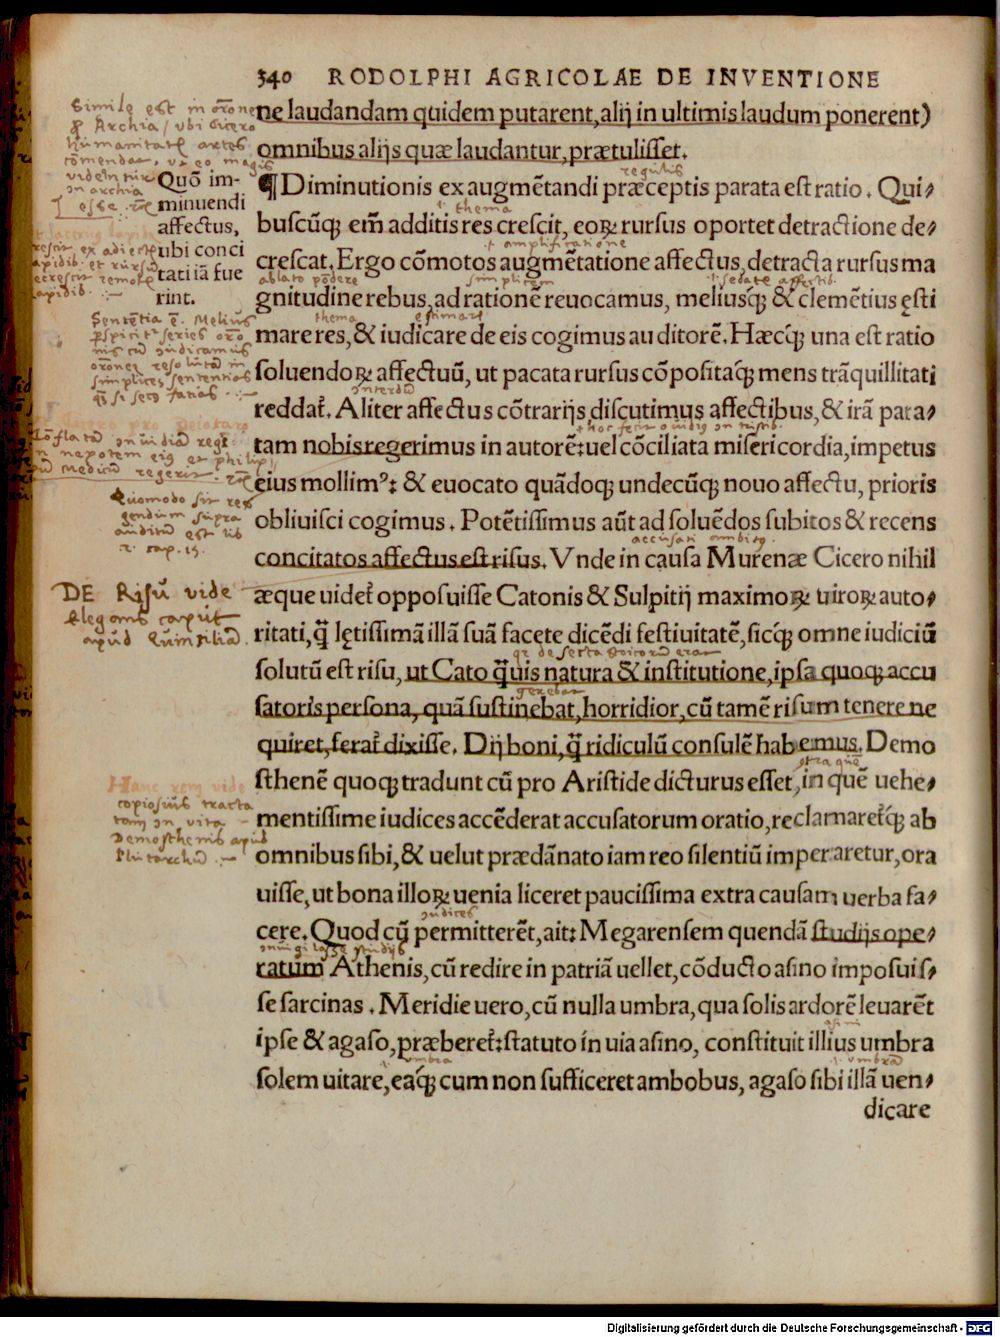 340 RODOLPHI AGRICOLAE DE INVENTIONE
ne laudandam quidem putarent, alij in ultimis laudum ponerent)
omnibus alijs quæ laudantur, prætulisset.
¶ Diminutionis ex augmētandi præceptis parata est ratio. Qui-
buscūꝗ em̄ additis res crescit, eoꝝ rursus oportet detractione de-
crescat. Ergo cōmotos augmētatione affectus, detracta rursus ma
gnitudine rebus, ad rationē reuocamus, meliusꝗ & clemētius ęsti
mare res, & iudicare de eis cogimus auditorē. Hæcꝗ una est ratio
soluendoꝝ affectuū, ut pacata rursus cōpositaꝗ mens trāquillitati
reddat̄. Aliter affectus cōtrarijs discutimus affectibus, & irā para-
tam nobis regerimus in autorē: uel cōciliata misericordia, impetus
eius mollimꝰ: & euocato quādoꝗ undecūꝗ nouo affectu, prioris
obliuisci cogimus. Potētissimus aūt ad soluēdos subitos & recens
concitatos affectus est risus. Vnde in causa Murenæ Cicero nihil
æque uidet̄ opposuisse Catonis & Sulpitij maximoꝝ uiroꝝ auto-
ritati, ꝗ̄ lętissimā illā suā facete dicēdi festiuitatē, sicꝗ omne iudiciū
solutū est risu, ut Cato ꝗ̄uis natura & institutione, ipsa quoꝗ accu
satoris persona, quā sustinebat, horridior, cū tamē risum tenere ne
quiret, ferat̄ dixisse. Dij boni, ꝗ̄ ridiculū consulē habemus. Demo
sthenē quoꝗ tradunt cū pro Aristide dicturus esset, in quē uehe-
mentissime iudices accēderat accusatorum oratio, reclamaret̄ꝗ ab
omnibus sibi, & uelut prædānato iam reo silentiū imperaretur, ora
uisse, ut bona illoꝝ uenia liceret paucissima extra causam uerba fa-
cere. Quod cū permitterēt, ait: Megarensem quendā studijs ope-
ratum Athenis, cū redire in patriā uellet, cōducto asino imposuis-
se sarcinas. Meridie uero, cū nulla umbra, qua solis ardorē leuarēt
ipse & agaso, præberet̄: statuto in uia asino, constituit illius umbra
solem uitare, eaꝗ cum non sufficeret ambobus, agaso sibi illā uen-
dicare
Quō im-
minuendi
affectus,
ubi conci
tati iā fue
rint.
Simile est in orōne
Archia / ubi Cicero
regulis
thema
amplificatione
simplicem
thema
DE Risū vide
elegans caput
apud
copiosius tracta
vita
Demosthenis apud
Plutarchū
iudices
asini
umbra
umbrā
Digitalisierung gefördert durch die Deutsche Forschungsgemeinschaft - DFG